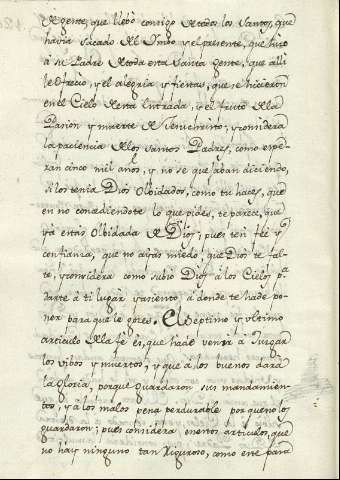 de gente, que llebo consigo de todos los Santos, que
havia sacado del Limbo y el presente, que hizo
â su Padre de toda esta Santa gente, que alli
le ofrecio, y el alegria y fiestas, que se hicieron
en el Cielo de esta entrada, y el fruto de la
Pasion y muerte de Jesuchristo; y considera
la paciencia de los santos Padres, como espe-
ran cinco mil años, y no se quejaban diciendo,
si los tenia Dios olbidados, como tu haces, que
en no concediendote lo que pides, te parece, que
ya estás olbidada de Dios; pues ten fee y
confianza, que no ayas miedo, que Dios te fal-
te, y considera como subio Dios á los Cielos pa
darte á ti lugar y asiento, â donde te hade po-
ner para que le gozes. El septimo y ultimo
articulo de la fe es, que hade venir â Juzgar
los vibos y muertos; y que â los buenos dará
la Gloria, porque guardaron sus mandamien-
tos, y â los malos pena perdurable porque no los
guardaron; pues considera en estos articulos, que
no hay ninguno tan riguroso, como este para